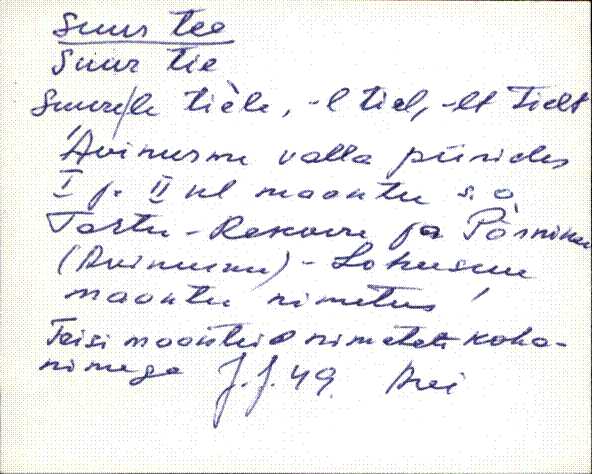 Suur tee
Suur tie
Suurele tièle, -l tiel, -lt tielt
Avinurme valla piirides
I ja II kl maantee s. o.
Tartu - Rakvere ja
(Avinurme) - Lohusuu
maantee nimetus
Teisi maanteid nimetati koha-
nimega J. J. 49. Avi